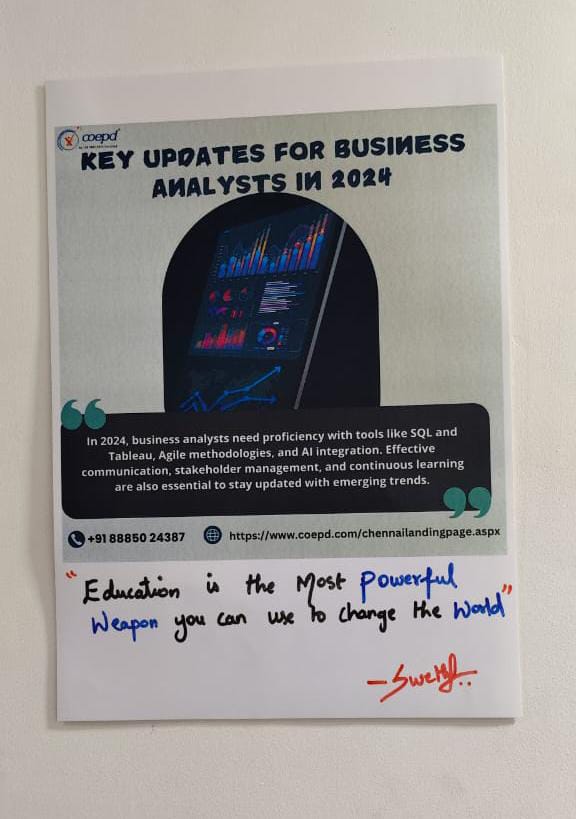 coepd
KEY UPDATES FOR BUSINESS
ANALYSTS IN 2024
In 2024, business analysts need proficiency with tools like SQL and
Tableau, Agile methodologies, and AI integration. Effective
communication, stakeholder management, and continuous learning
are also essential to stay updated with emerging trends.
+91 88850 24387 https://www.coepd.com/chennailandingpage.aspx
"Education is the Most Powerful
Weapon you can use to change the World"